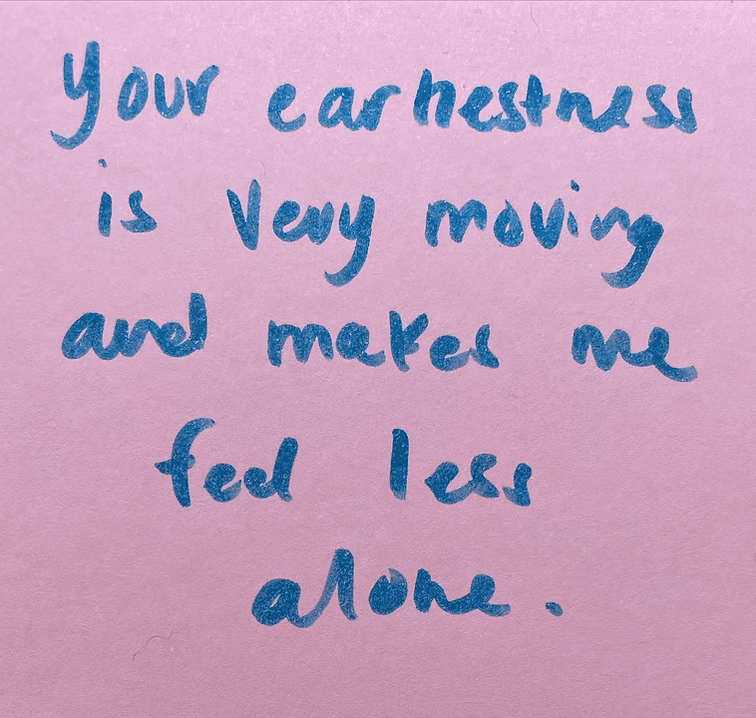 Your earnestness
is very moving
and makes me
feel less
alone.